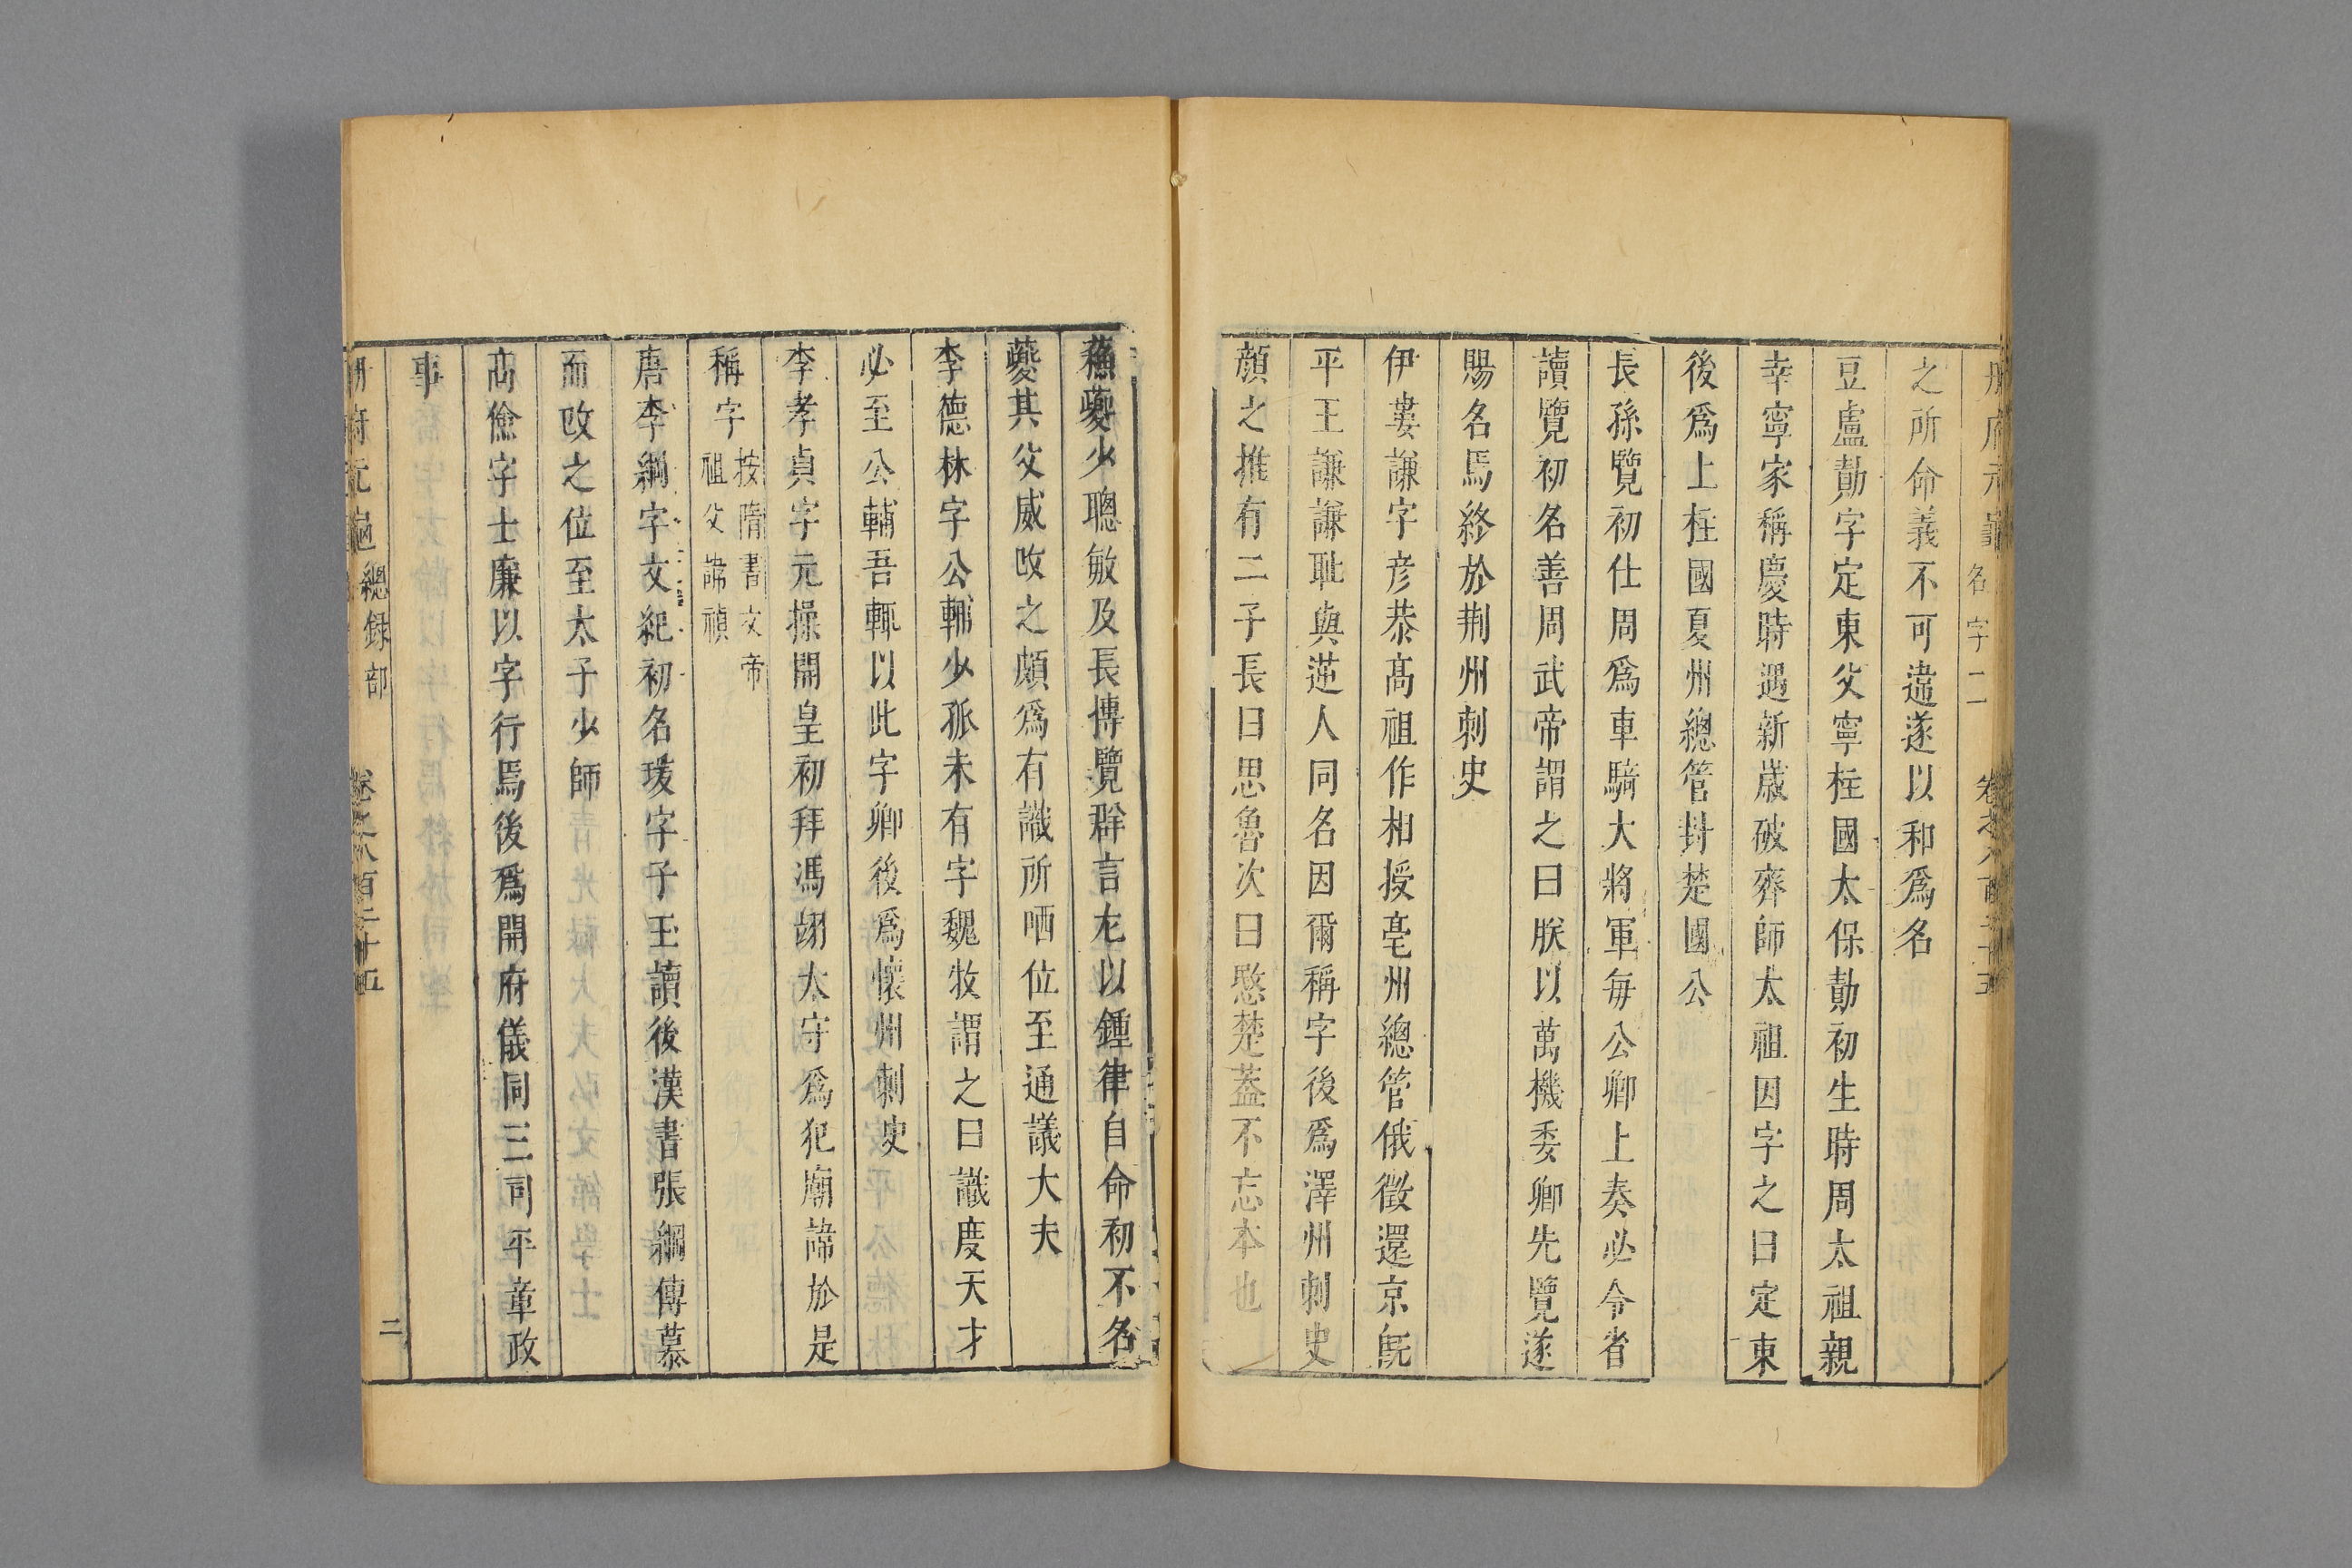 冊府元龜 名字二 卷之八百二十五
之所命義不可違遂以和爲名
豆盧勣字定東父寧柱國太保勣初生時周太祖親
幸寧家稱慶時遇新歲破齊師太祖因字之曰定東
後爲上柱國夏州總管封楚國公
長孫覽初仕周爲車騎大將軍每公卿上奏必令省
讀覽初名善周武帝謂之曰朕以萬機委卿先覽遂
賜名焉終於荆州刺史
伊婁謙字彦恭髙祖作相授亳州總管俄徵還京旣
平王謙謙耻與逆人同名因爾稱字後爲澤州刺史
顔之推有二子長曰思魯次曰愍楚蓋不忘本也
蘓夔少聰敏及長博覽群言尤以鍾律自命初不名
夔其父威改之頗爲有識所哂位至通議大夫
李德林字公輔少孤未有字魏收謂之曰識度天才
必至公輔吾輒以此字卿後爲懷州刺史
李孝貞字元操開皇初拜馮翊太守爲犯廟諱於是
稱字 按隋書文帝
祖父諱禎
唐李綱字文紀初名瑗字子玉讀後漢書張綱傳慕
而改之位至太子少師
高儉字士廉以字行焉後爲開府儀同三司平章政
事
冊府元龜 總録部 卷之八百二十五 二